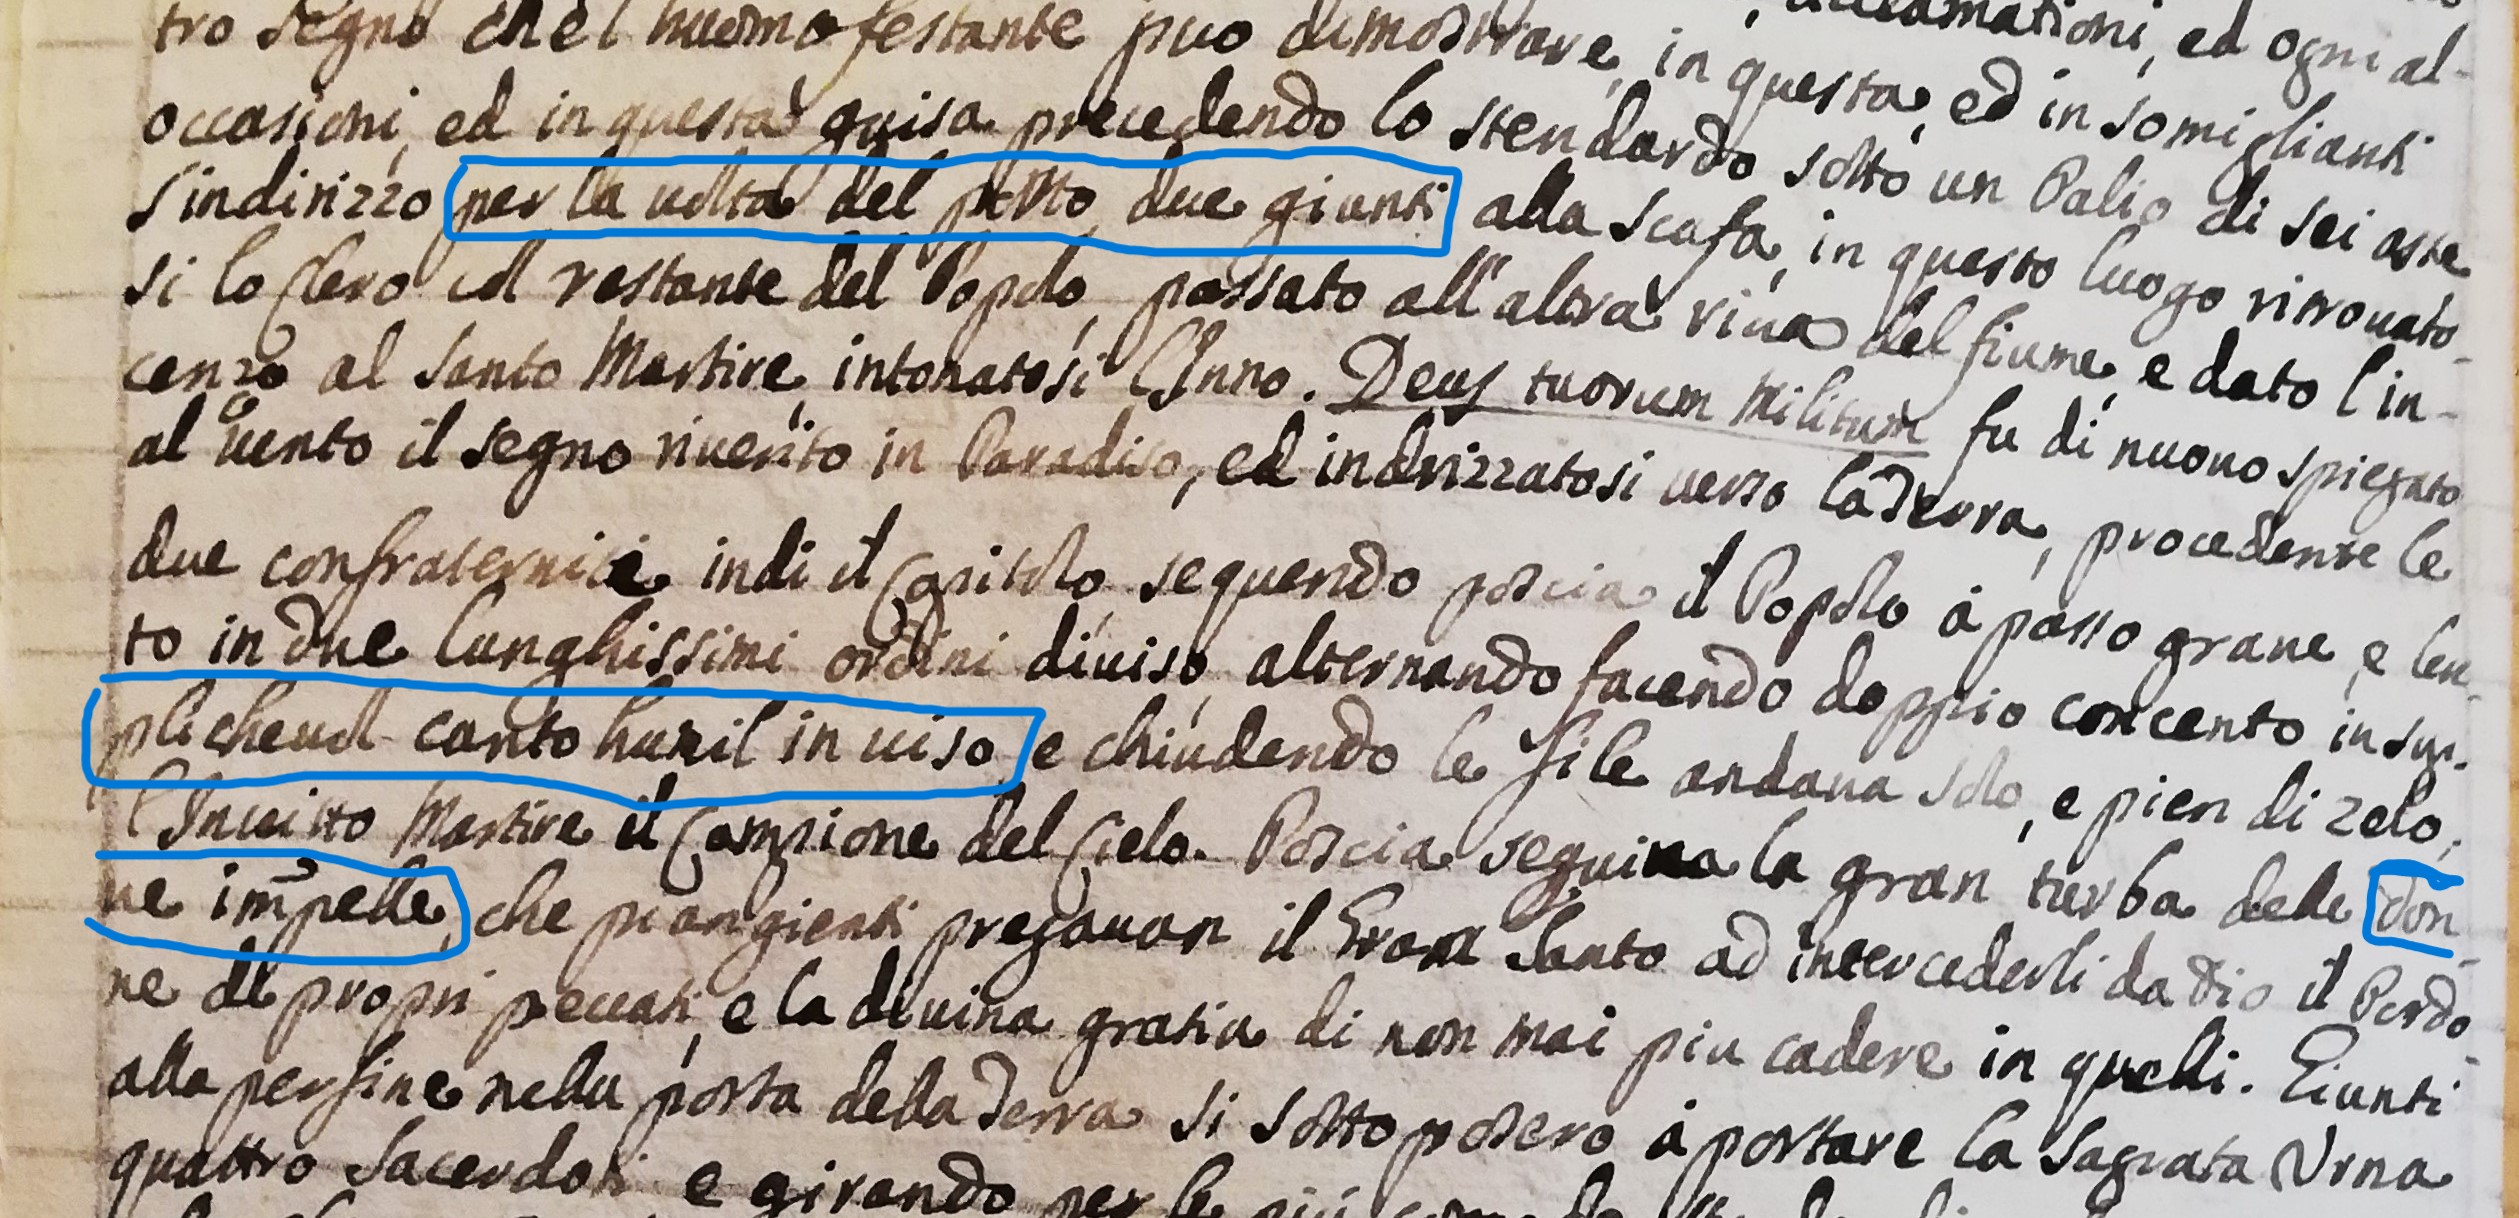 acclamationi, ed ogni al-
tro segno che l huomo festante può dimostrare, in questa, ed in somiglianti
occasioni, ed in questa guisa precedendo lo stendardo sotto un Palio di sei aste
s'indirizzo per la uolta del porto, due giunti alla scafa, in questo luogo ritrouato-
si lo Clero col restante del Popolo, passato all'altra riua del fiume, e dato l'in-
cenzo al Santo Martire, intonatosi l'Inno. Deus tuorum Militum fu di nuouo spiegato
al uento il segno riuerito in Paradiso, ed indrizzatosi uerso la Terra, procedente le
due confraternità indi il Capitolo, sequendo poscia il Popolo à passo graue, e len-
to in due lunghissimi ordini diuiso, alternando facendo doppio concento in sup-
plicheuol canto humil in uiso, e chiudendo le file andaua solo, e pien di zelo,
l'Inuitto Martire il Campione del Cielo. Poscia seguiua la gran turba delle don
ne impelle, che piangienti pregauan il Gran Santo ad intercederli da Dio il Perdo-
ne de propri peccati, e la diuina gratia di non mai piu cadere in quelli. Giunti
alla perfine nella porta della Terra si sotto posero à portare la Sagrata Vrna
quattro Sacerdoti e girando per le più